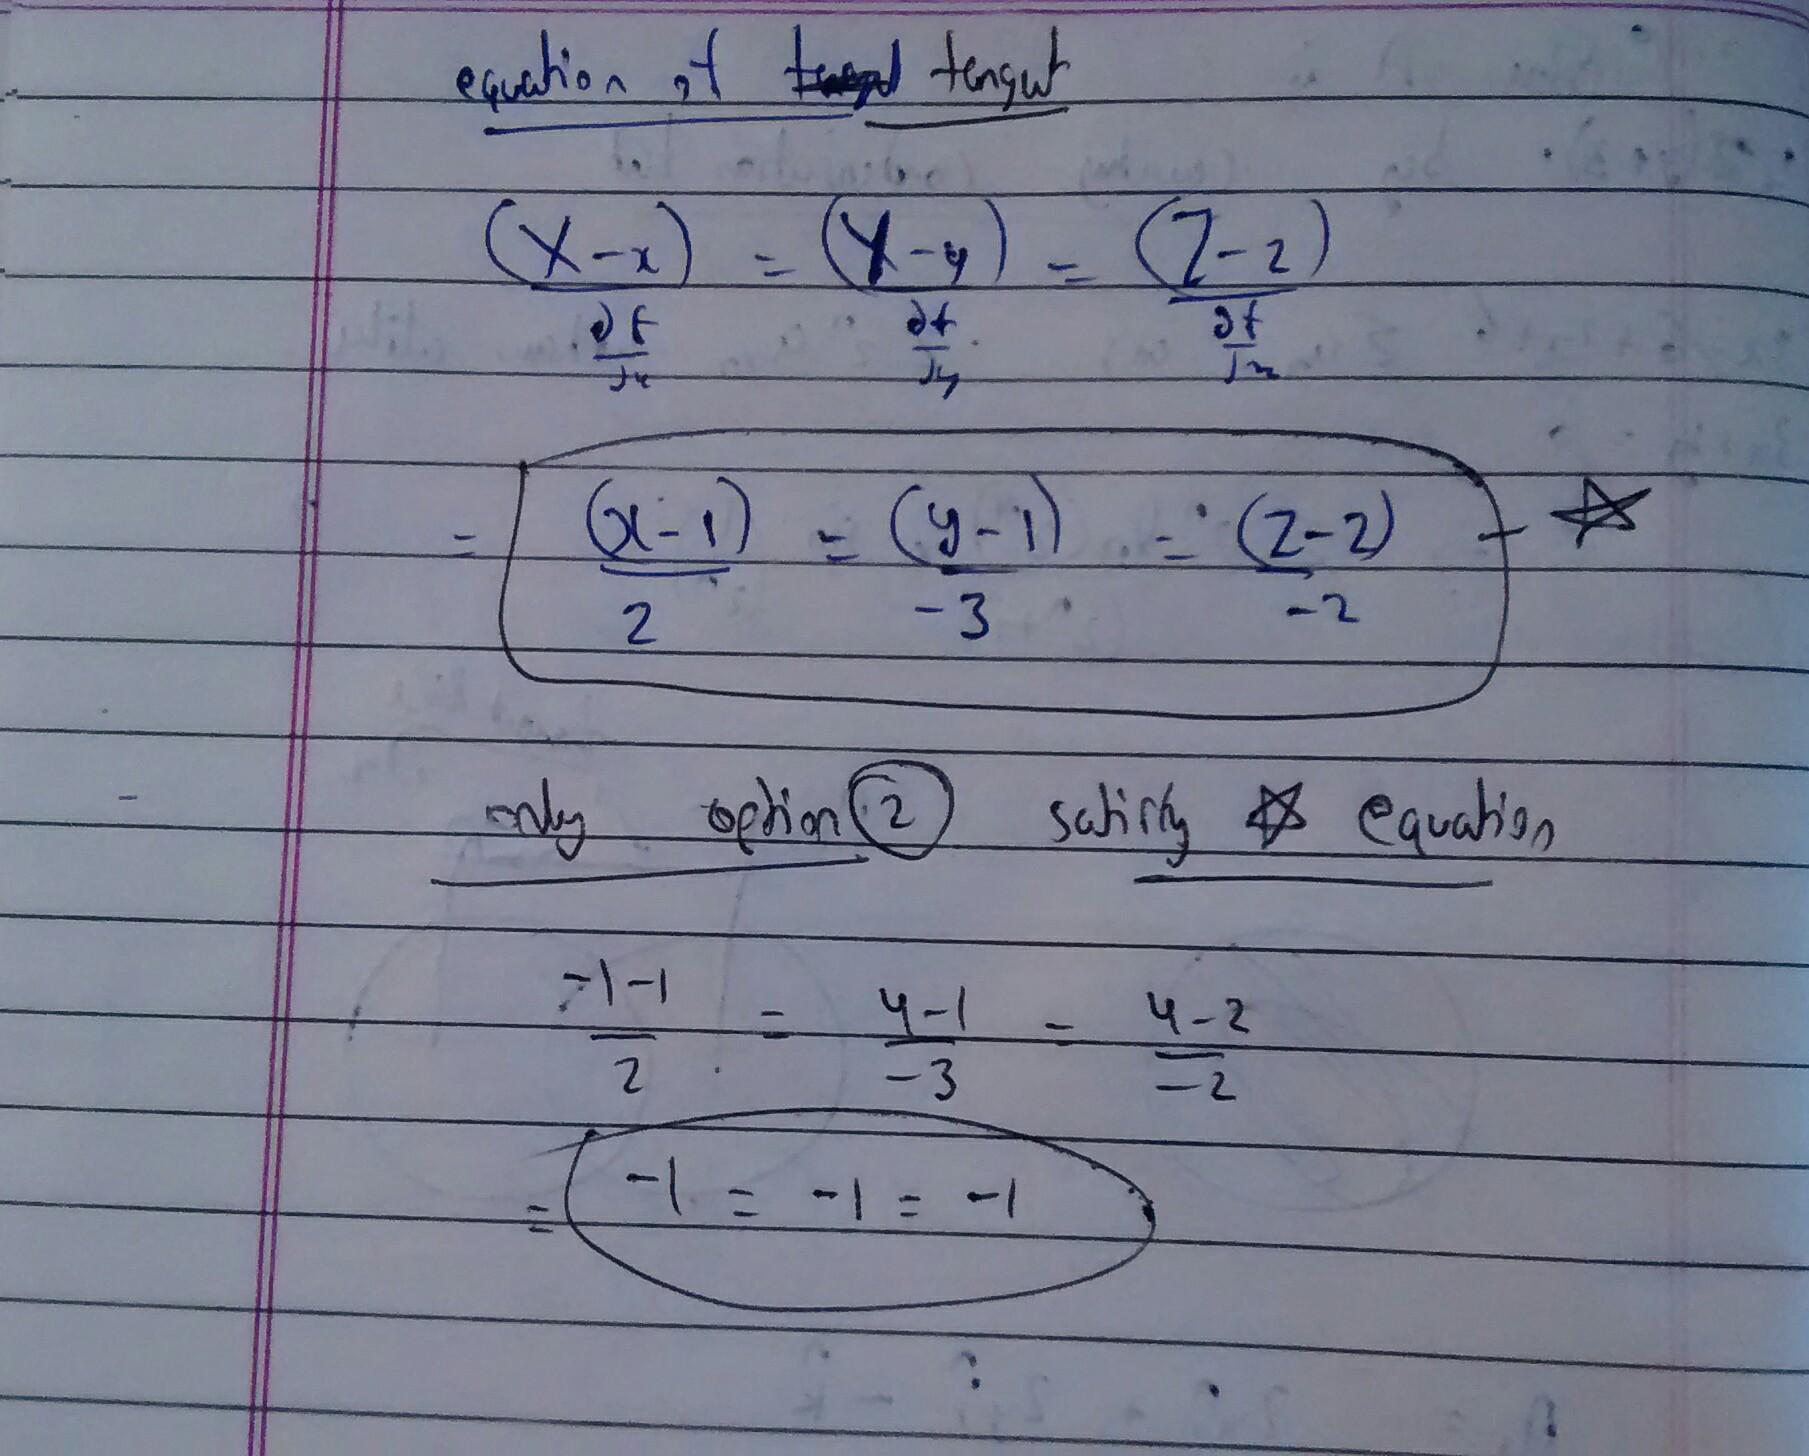 equation of tengut
(X-x) = (Y-y) = (Z-z)
∂f/∂x ∂f/∂y ∂f/∂z
= (x-1)/2 = (y-1)/-3 = (z-2)/-2 - ☆
only option ② satisfy ☆ equation
-1-1/2 = 4-1/-3 = 4-2/-2
= -1 = -1 = -1